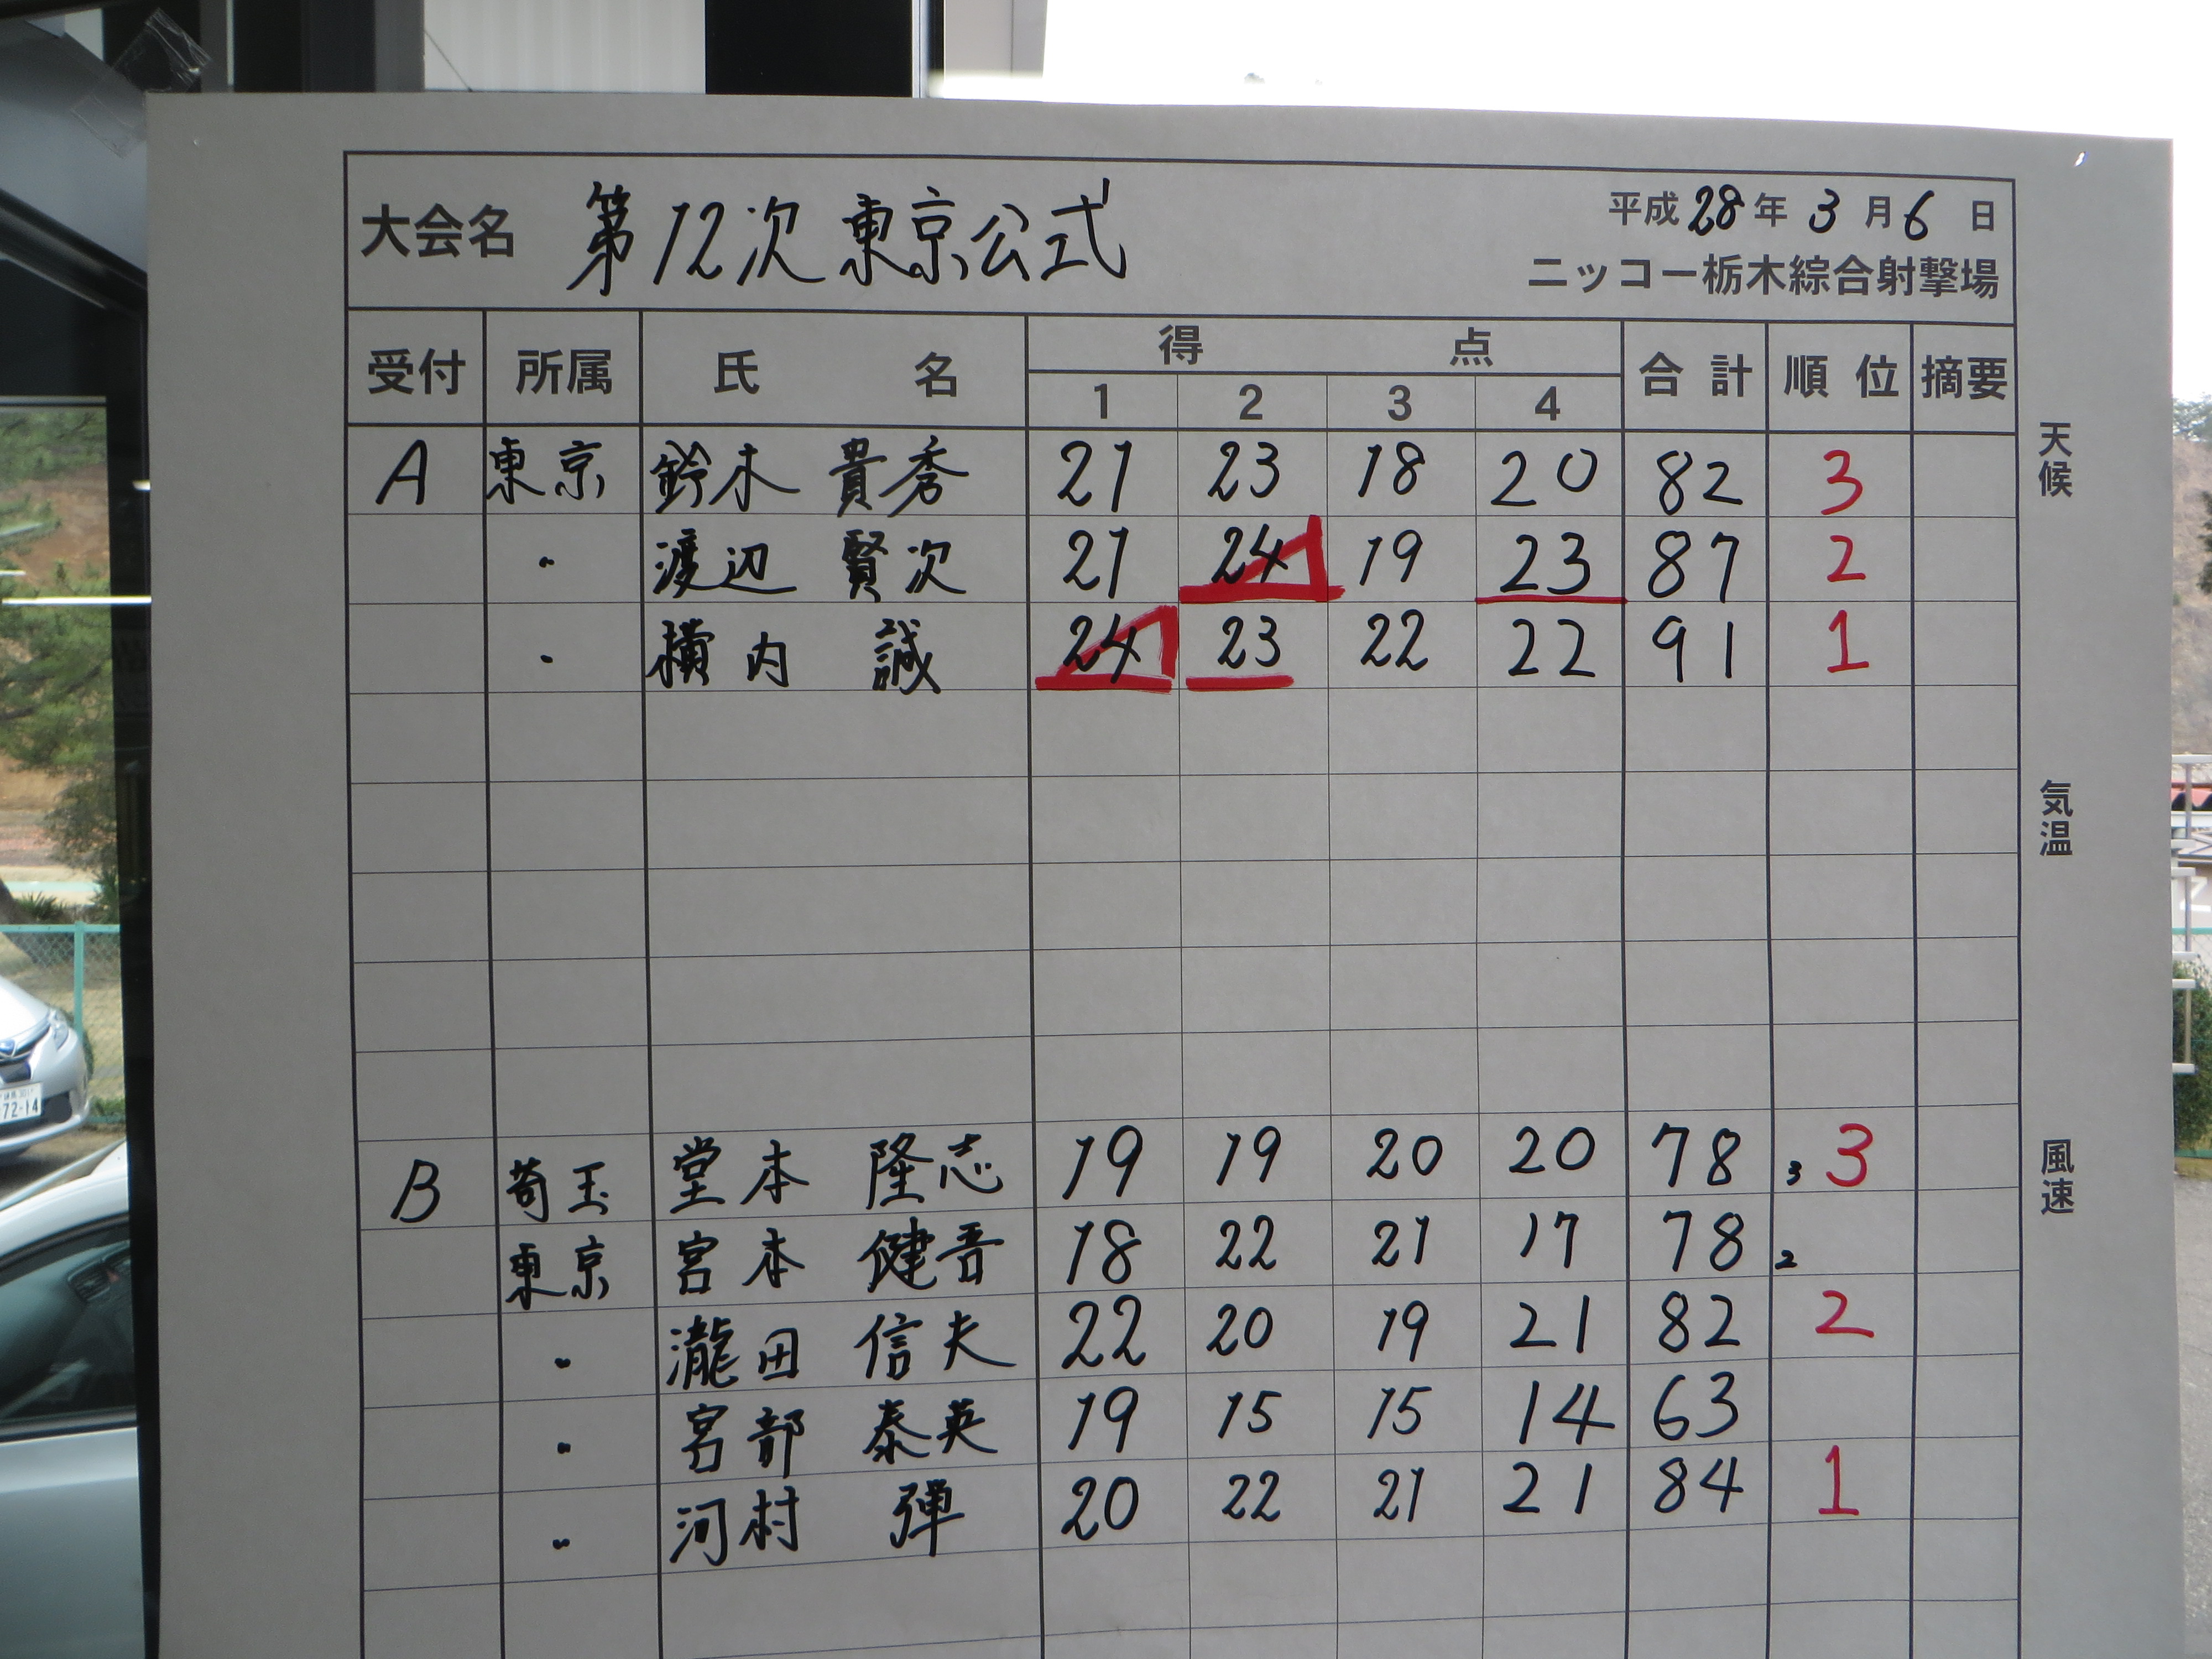 大会名 第12次東京公式
平成28年3月6日
ニッコー栃木綜合射撃場
受付 所属 氏名 得点 合計 順位 摘要
1 2 3 4
A 東京 鈴木 貴秀 21 23 18 20 82 3
〃 渡辺 賢次 21 24 19 23 87 2
〃 横内 誠 24 23 22 22 91 1
B 埼玉 堂本 隆志 19 19 20 20 78 3 3
東京 宮本 健吾 18 22 21 17 78 2
〃 瀧田 信夫 22 20 19 21 82 2
〃 宮部 泰英 19 15 15 14 63
〃 河村 弾 20 22 21 21 84 1
天候
気温
風速
72-14